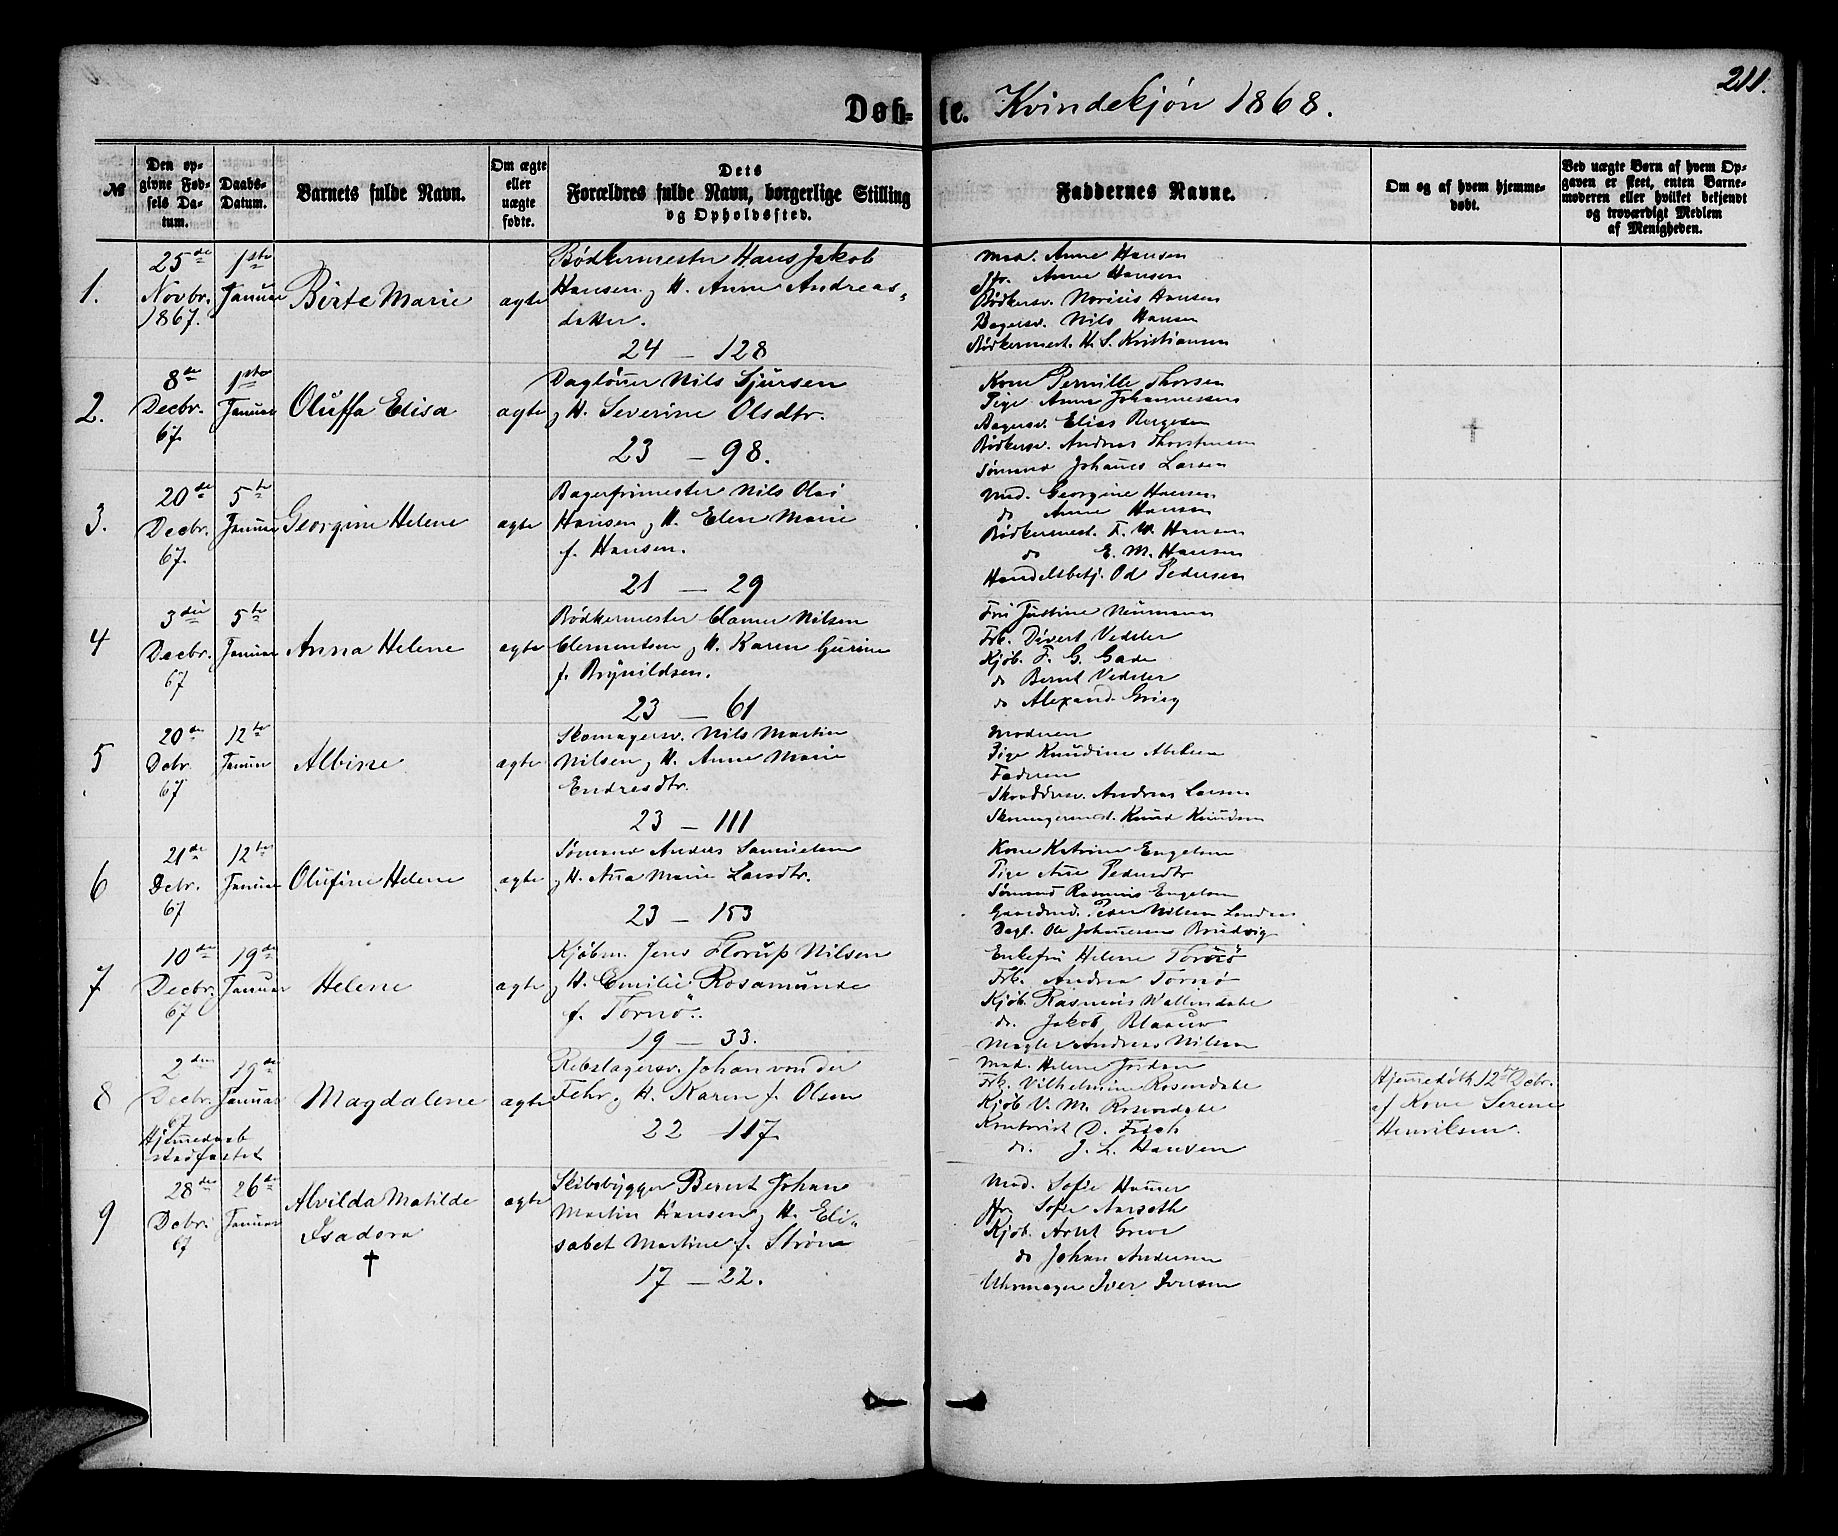 211.
Døbte. Kvindekjøn 1868.
№
Den opgivne Fødsels Datum.
Daabs-Datum.
Barnets fulde Navn.
Om ægte eller uægte fødte.
Dets Forældres fulde Navn, borgerlige Stilling og Opholdssted.
Faddernes Navne.
Om og af hvem hjemmedøbt.
Ved uægte Børn af hvem Opgaven er skeet, enten Barnemoderen eller hvilket bekjendt og troværdigt Medlem af Menigheden.
1.
25de Novbr. 1867.
1ste Januar
Birte Marie
ægte
Bødkermester Hans Jakob
Hansen og H. Anne Andreas-
datter.
24 – 128
Mad. Anne Hansen
Jfr. Anne Hansen
Bødkersv. Hansen
Bagersv. Nils Hansen
Bødkermest. H. S. Kristiansen
2.
8de Decbr. 67.
1ste Januar
Oluffa Elisa
ægte
Dagløner Nils Sjursen
og H. Severine Olsdtr.
23 – 98.
Kone Pernille Thorsen
Pige Anne Johannessen
Bagersv. Elias Bergesen
Bødkersv. Andreas Thorstensen
Sømand Johanes Larsen
†
3.
20de Decbr. 67.
5te Januar
Georgine Helene
ægte
Bagersvmester Nils Olai
Hansen og H. Elen Marie
f. Hansen.
21 – 29
Mad. Georgine Hansen
do Anne Hansen
Bødkermest. F. W. Hansen
do E. M. Hansen
Handelsbetj. Od Pedersen
4
3die Decbr. 67
5te Januar
Anna Helene
ægte
Bødkermester Clamer Nilsen
Clementsen og H. Karen Gurine
f. Brynildsen.
23 – 61
Fru Justine Neumann
Frk. Divert Vedeler
Kjøb. F. G. Gade
do Bernt Vedeler
do Alexand. Grieg
5
20de Debr. 67
12te Januar
Albine
ægte
Skomagersv. Nils Martin
Nilsen og H. Anne Marie
Endresdtr.
23 – 111
Moderen
Pige Knudine
Faderen
Skræddersv. Andreas Larsen
Skomagermest. Knud Knudsen
6
21de Debr. 67
12te Januar
Olufine Helene
ægte
Sømand Anders Samuelsen
og H. Ana Marie Larsdtr.
23 – 153
Kone Katrine Engelsen
Pige Ane Pedersdtr
Sømand Rasmus Engelsen
Gaardmd. Peder Nilsen
Dagl. Ole Johannesen Brudvig
7
10de Decbr. 67
19de Januar
Helene
ægte
Kjøbm. Jens Florup Nilsen
og H. Emilie Rosamunde
f. Tornø.
19 – 33.
Enkefru Helene Tornø
Frk. Andrea Tornø
Kjøb. Rasmus Wallendahl
do. Jakob Blaauw
Mægler Andreas Nilsen
8
2den Decbr. 67
Hjemmedaab
stadfæstet
19de Januar
Magdalene
ægte
Rebslagersv. Johan von der
Fehr og H. Karen f. Olsen
22 117.
Mad. Helene Jordan
Frk. Vilhelmine Rosendahl
Kjøb V. M. Rosendahl
Kontorist D. Frich
do. J. L. Hansen
Hjemmedøbt 12te Debr.
af Kone Serene
Henriksen.
9
28de Debr. 67
26de Januar
Alvilda Matilde
Isadora
†
ægte
Skibsbygger Bernt Johan
Martin Hansen og H. Eli-
sabet Martine f. Strøm
17 – 22.
Mad. Sofie Hamer
Jfr Sofie Aarseth
Kjøb. Arnt Greve
do Johan Andersen
Uhrmager Iver Iversen